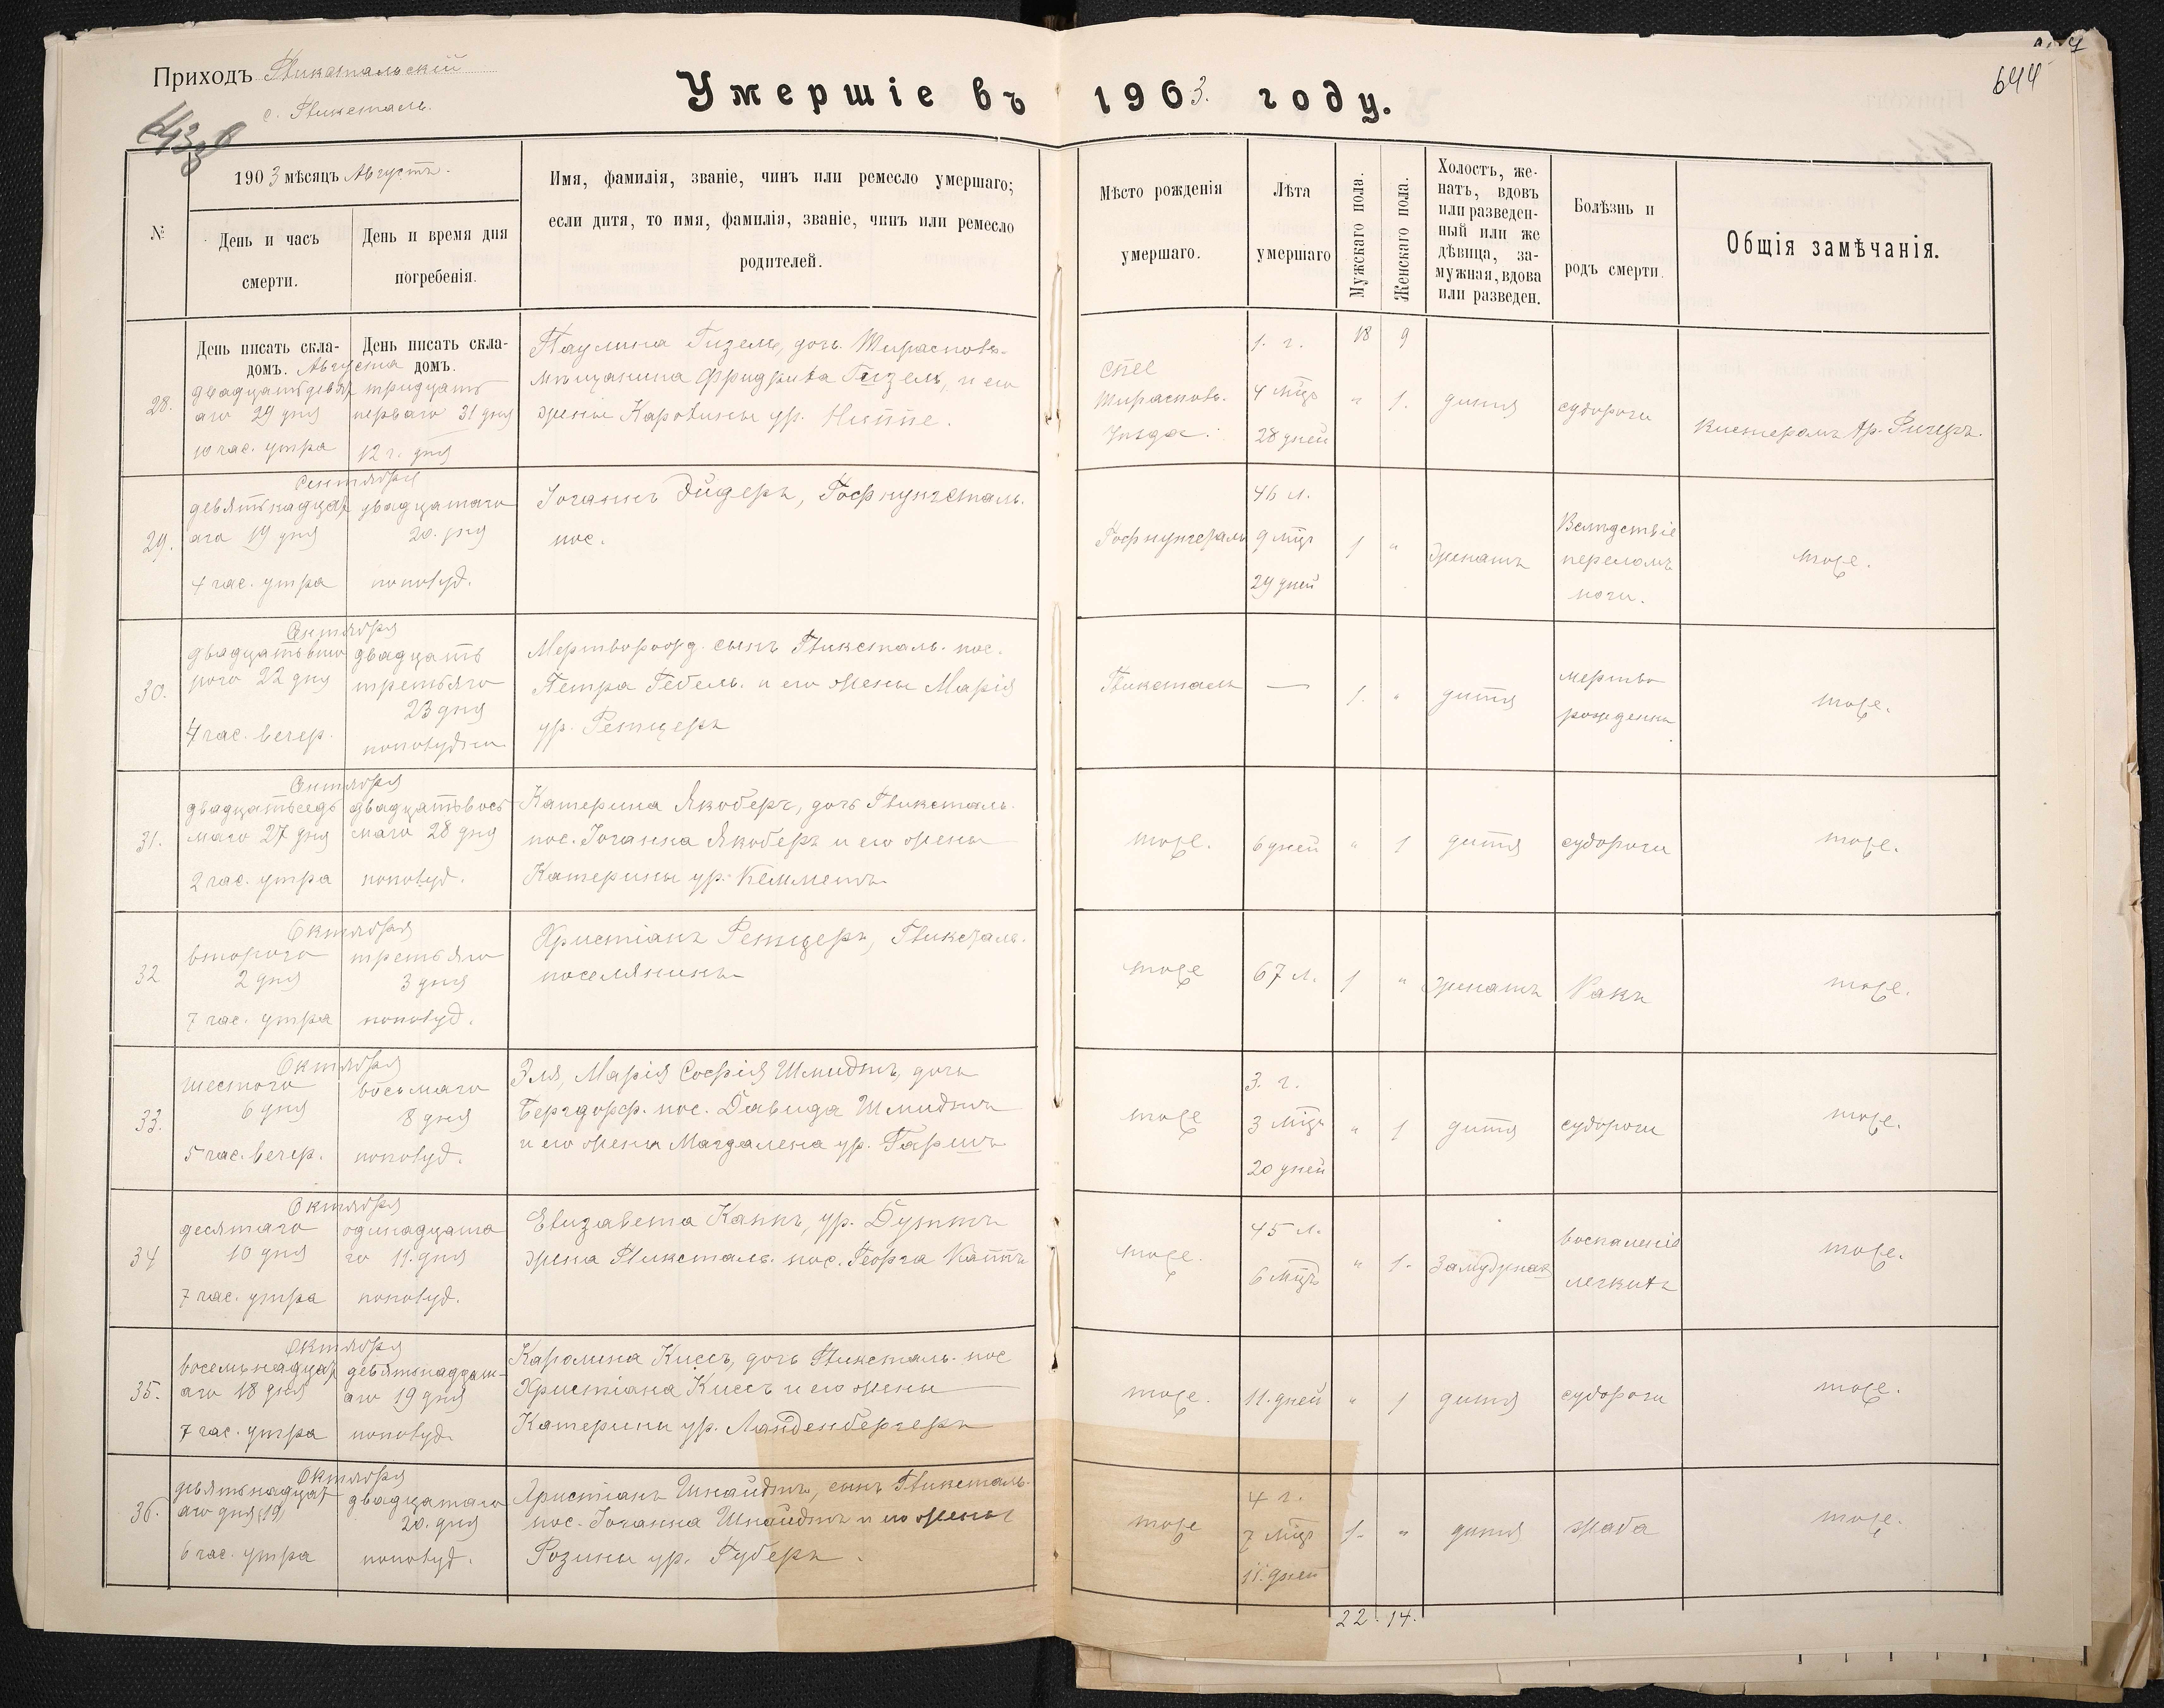 Приходъ Гликстальскій
с. Гликсталь.
Умершіе въ 1903. году.
644
1903 мѣсяцъ Августъ.
№
День и часъ смерти.
День и время дня погребенія.
Имя, фамилія, званіе, чинъ или ремесло умершаго;
если дитя, то имя, фамилія, званіе, чинъ или ремесло
родителей.
Мѣсто рожденія
умершаго.
Лѣта
умершаго
Мужскаго пола.
Женскаго пола.
Холостъ, же-
натъ, вдовъ
или разведен-
ный или же
дѣвица, за-
мужная, вдова
или разведен.
Болѣзнь и
родъ смерти.
Общія замѣчанія.
День писать скла-
домъ.
День писать скла-
домъ.
18 9
28.
Августа
двадцатьдевят
аго 29 дня
10 час. утра
тридцать
перваго 31 дня
12 ч. дня
Паулина Гизель, дочь Тираспольс.
мѣщанина Фридриха Гизель, и его
жены Каролины ур. Ниппе.
Тираспольс.
уѣзда.
1. г.
4 мѣс
28 дней
" 1.
дитя
судороги
Кистеромъ Ар. Рицъ.
29.
Сентября
девятьнадцат
аго 19 дня
4 час. утра
двадцатаго
20. дня
пополуд.
Іоганнъ Эйдеръ, Гофнунгсталь.
пос.
Гофнунгсталь
46 л.
9 мѣс
29 дней
1 "
женатъ
Вслѣдствіе
переломъ
ноги.
тоже.
30.
Сентября
двадцатьвто
рого 22 дня
4 час. вечер.
двадцать
третьяго
23 дня
пополудни
Мертворожд. сынъ Гликсталь. пос.
Петра Гебель. и его жены Марія
ур. Ретцеръ
Гликсталь
—
1. "
дитя
мертво
рожденъ
тоже.
31.
Сентября
двадцатьседь
маго 27 дня
2 час. утра
двадцатьвось
маго 28 дня
пополуд.
Катерина Якоберъ, дочь Гликсталь.
пос. Іоганна Якоберъ и его жены
Катерины ур. Кемметъ
тоже.
6 дней
" 1
дитя
судороги
тоже.
32
Октября
второго
2 дня
7 час. утра
третьяго
3 дня
пополуд.
Христіанъ Ретцеръ, Гликсталь.
поселянинъ
тоже
67 л.
1 "
женатъ
Ракъ
тоже.
33.
Октября
шестого
6 дня
5 час. вечер.
восьмаго
8 дня
пополуд.
Эля, Марія Софія Шмидтъ, дочь
Бергдорф. пос. Давида Шмидтъ
и его жены Магдалена ур. Гаришъ
тоже
3. г.
3 мѣс
20 дней
" 1
дитя
судороги
тоже.
34
Октября
десятаго
10 дня
7 час. утра
одинадцата
го 11. дня
пополуд.
Елизавета Каппъ, ур. Дуттъ
жена Гликсталь. пос. Георга Каппъ
тоже.
45 л.
6 мѣс
" 1.
Замужная
воспаленіе
легкихъ
тоже.
35.
Октября
восемьнадцат
аго 18 дня
7 час. утра
девятьнадцат-
аго 19 дня
пополуд.
Каролина Киссъ, дочь Гликсталь. пос
Христіана Киссъ и его жены
Катерины ур. Ланденбергеръ
тоже.
11. дней
" 1
дитя
судороги
тоже.
36.
Октября
девятьнадцат
аго дня (19)
6 час. утра
двадцатаго
20. дня
пополуд.
Христіанъ Шнайдтъ, сынъ Гликсталь.
пос. Іоганна Шнайдтъ и его жены
Розины ур. Губеръ.
тоже
4 г.
7 мѣс
11. дней
1. "
дитя
жаба
тоже.
22. 14.